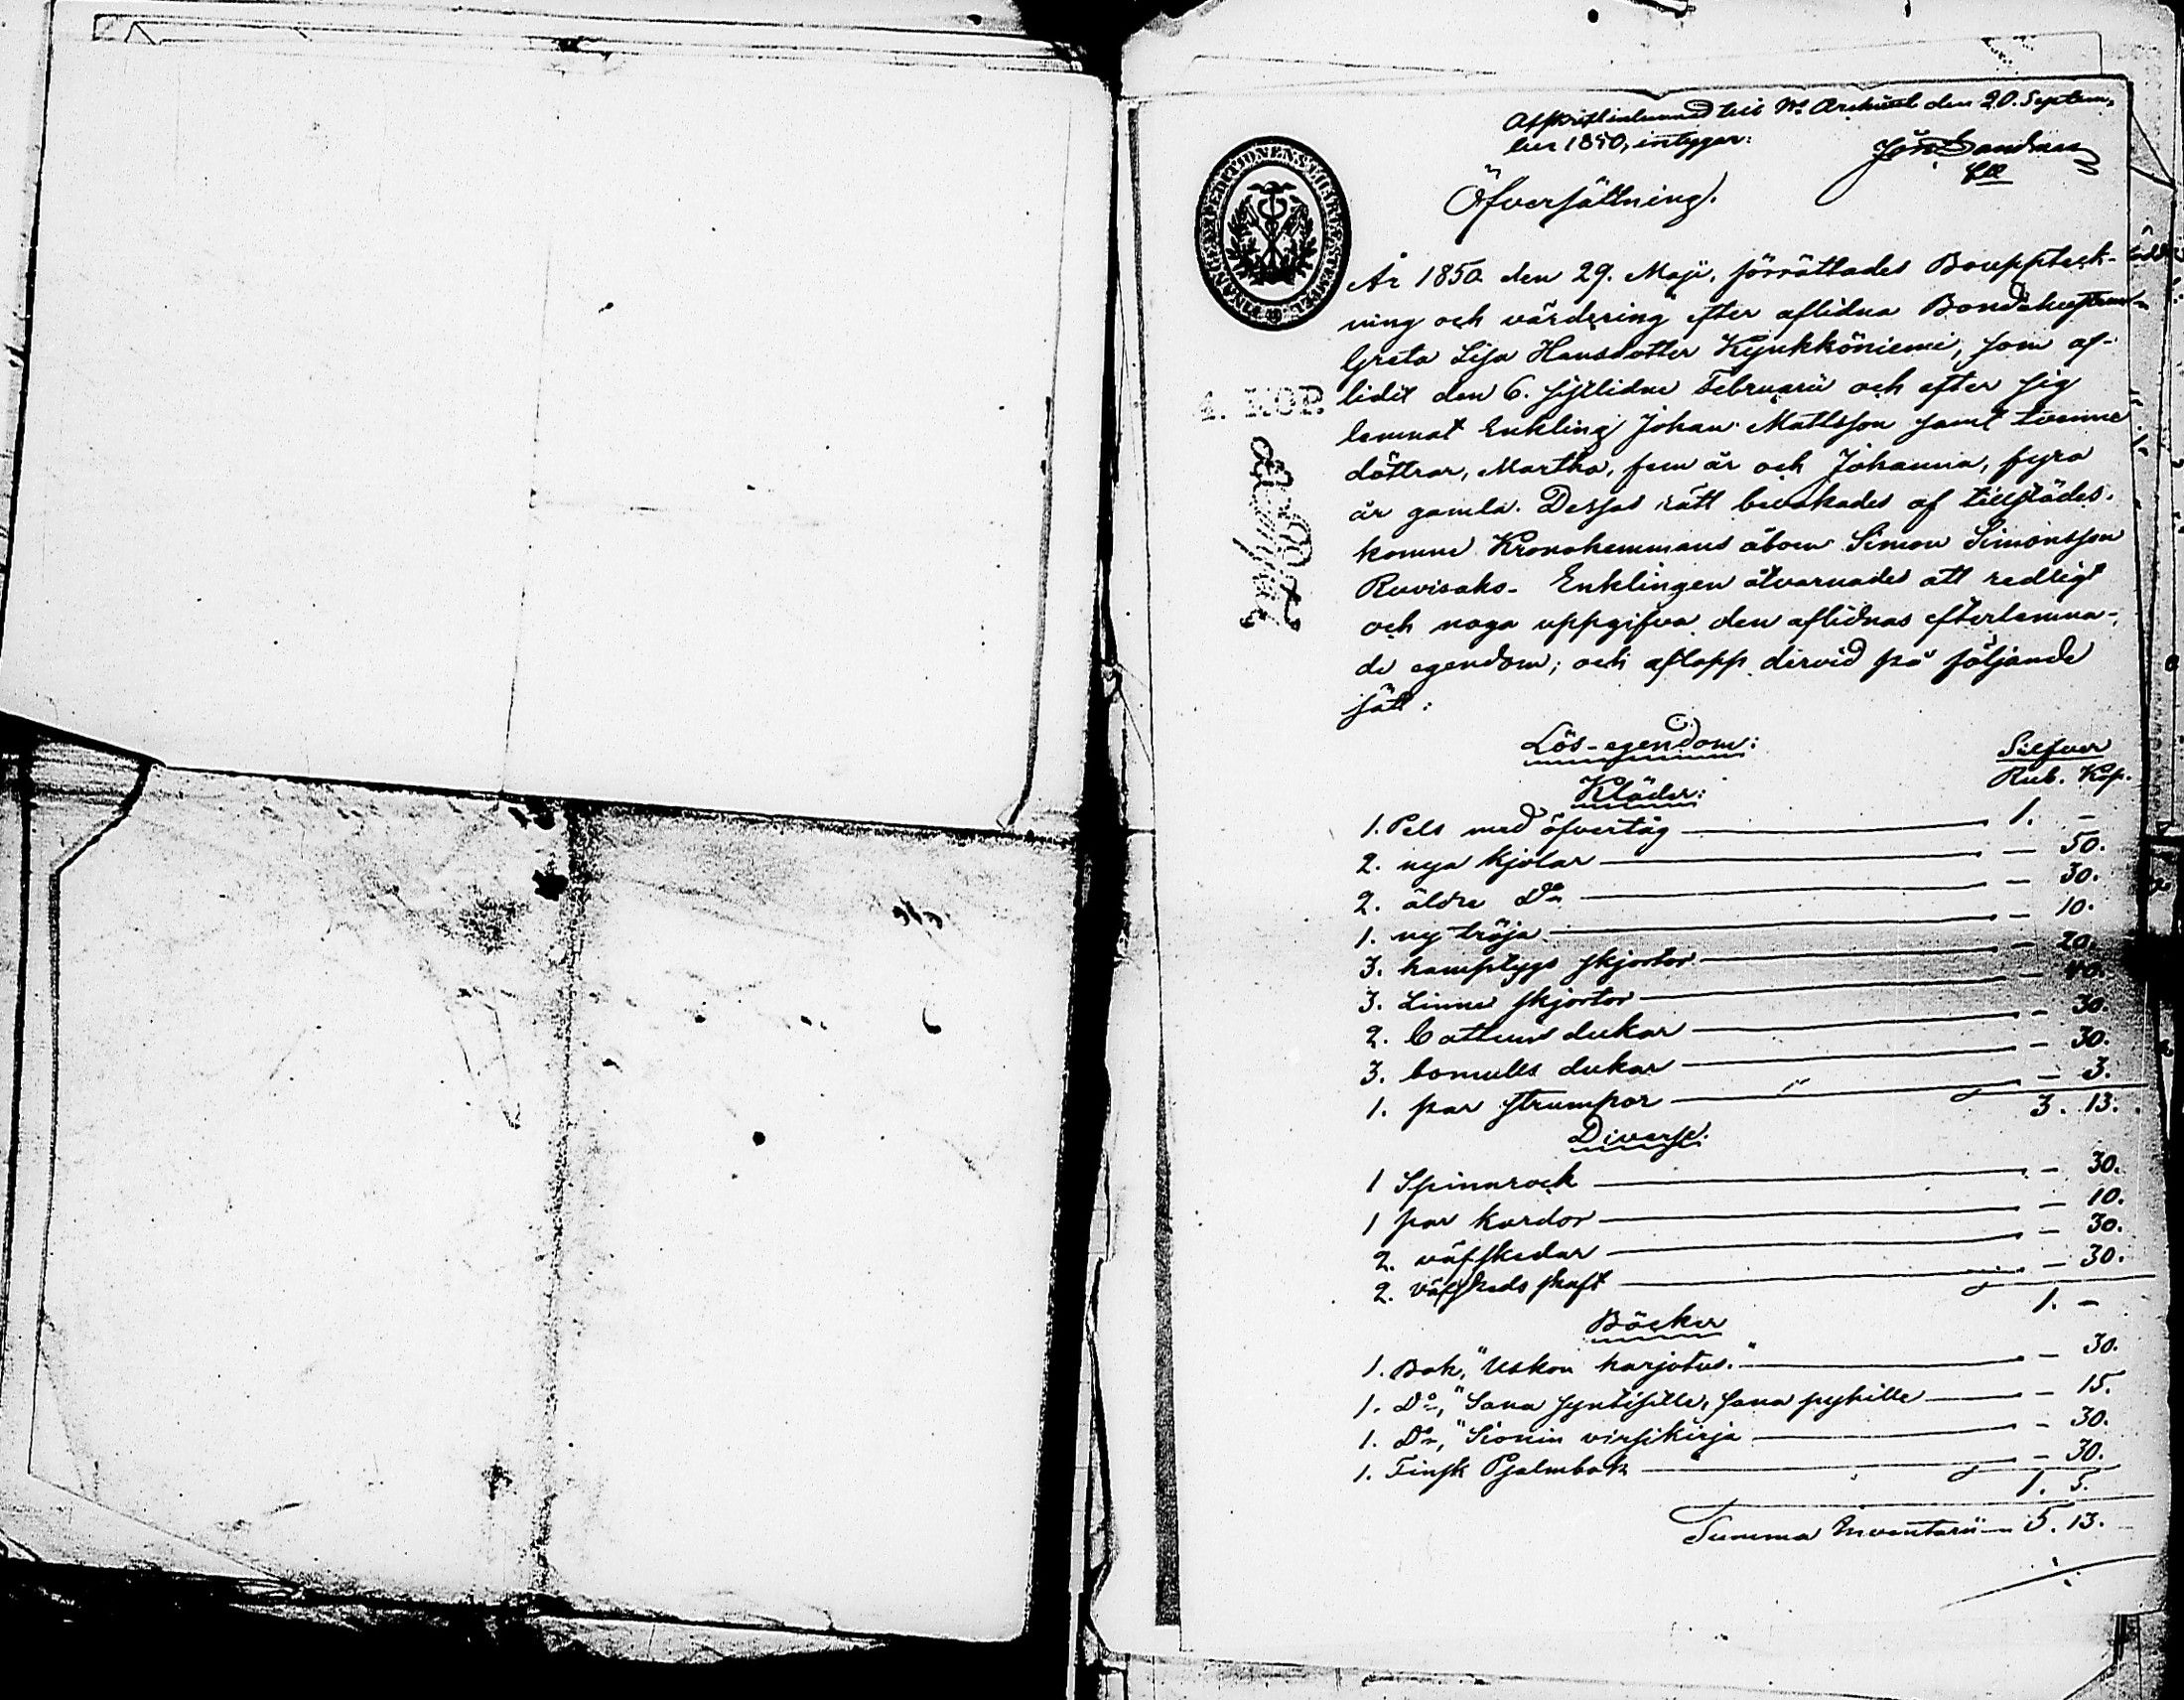 Afskrift inlemnad till Hds Archivet den 20. Septem-
ber 1850, intygar:
Joh Sandman
Öfversättning.
FINANCE EXPEDITIONENS CHARTÆ STEMPEL
4. KOP.
År 1850 den 29. Maji, förrättades Bouppteck-
ning och värdering efter aflidna Bondehustrun
Greta Lisa Hansdotter Kynkköniemi, som af-
lidit den 6. sistlidne Februarii och efter sig
lemnat Enkling Johan Mattsson samt tvenne
döttrar, Martha, fem år och Johanna, fyra
år gamla. Dessas rätt bevakades af tillstädes-
komne Kronohemmans åboen Simon Simonsson
Ruvisaho. Enklingen åtvarnades att redligt
och noga uppgifva den aflidnas efterlemna-
de egendom; och aflopp dervid på följande
sätt:
Lös-egendom: Silfver
Kläder: Rub. Kop.
1. Pels med öfvertåg — 1. –
2. nya kjolar — – 50.
2. äldre Do — – 30.
1. ny tröja — – 10.
3. hamptygs skjortor — – 20.
3. Linne skjortor — – 40.
2. Cattuns dukar — – 30.
3. bomulls dukar — – 30.
1. par strumpor — – 3.
3. 13.
Diverse:
1 Spinnrock — – 30.
1 par kardor — – 10.
2. väfskedar — – 30.
2. väfskeds skaft — – 30.
1. –
Böcker
1. Bok, "Uskon harjotus." — – 30.
1. Do, "Sana syntisille, sana pyhille — – 15.
1. Do, "Sionin virsikirja — – 30.
1. Finsk Psalmbok — – 30.
1. 5.
Summa Inventarii — 5. 13.